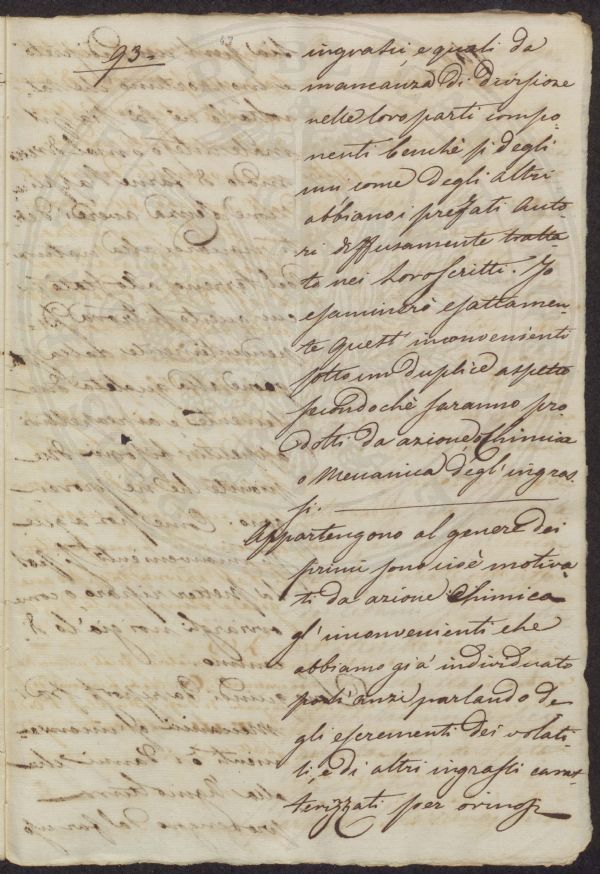 93.
ingrassi, e quali da
mancanza di divisione
nelle loro parti compo-
nenti benchè sì degli
uni come degli altri
abbiano i prefati Auto-
ri diffusamente tratta-
to nei loro scritti. Io
esaminerò esattamen-
te quest'inconvenienti
sotto un duplice aspetto
secondochè saranno pro
dotti da azione Chimica
o Meccanica degl'ingras-
si.
Appartengono al genere dei
primi sono cioè motiva-
ti da azione Chimica
gl'inconvenienti che
abbiamo già individuato
poch'anzi parlando de
gli escrementi dei volati-
li, e di altri ingrassi carat-
terizzati per